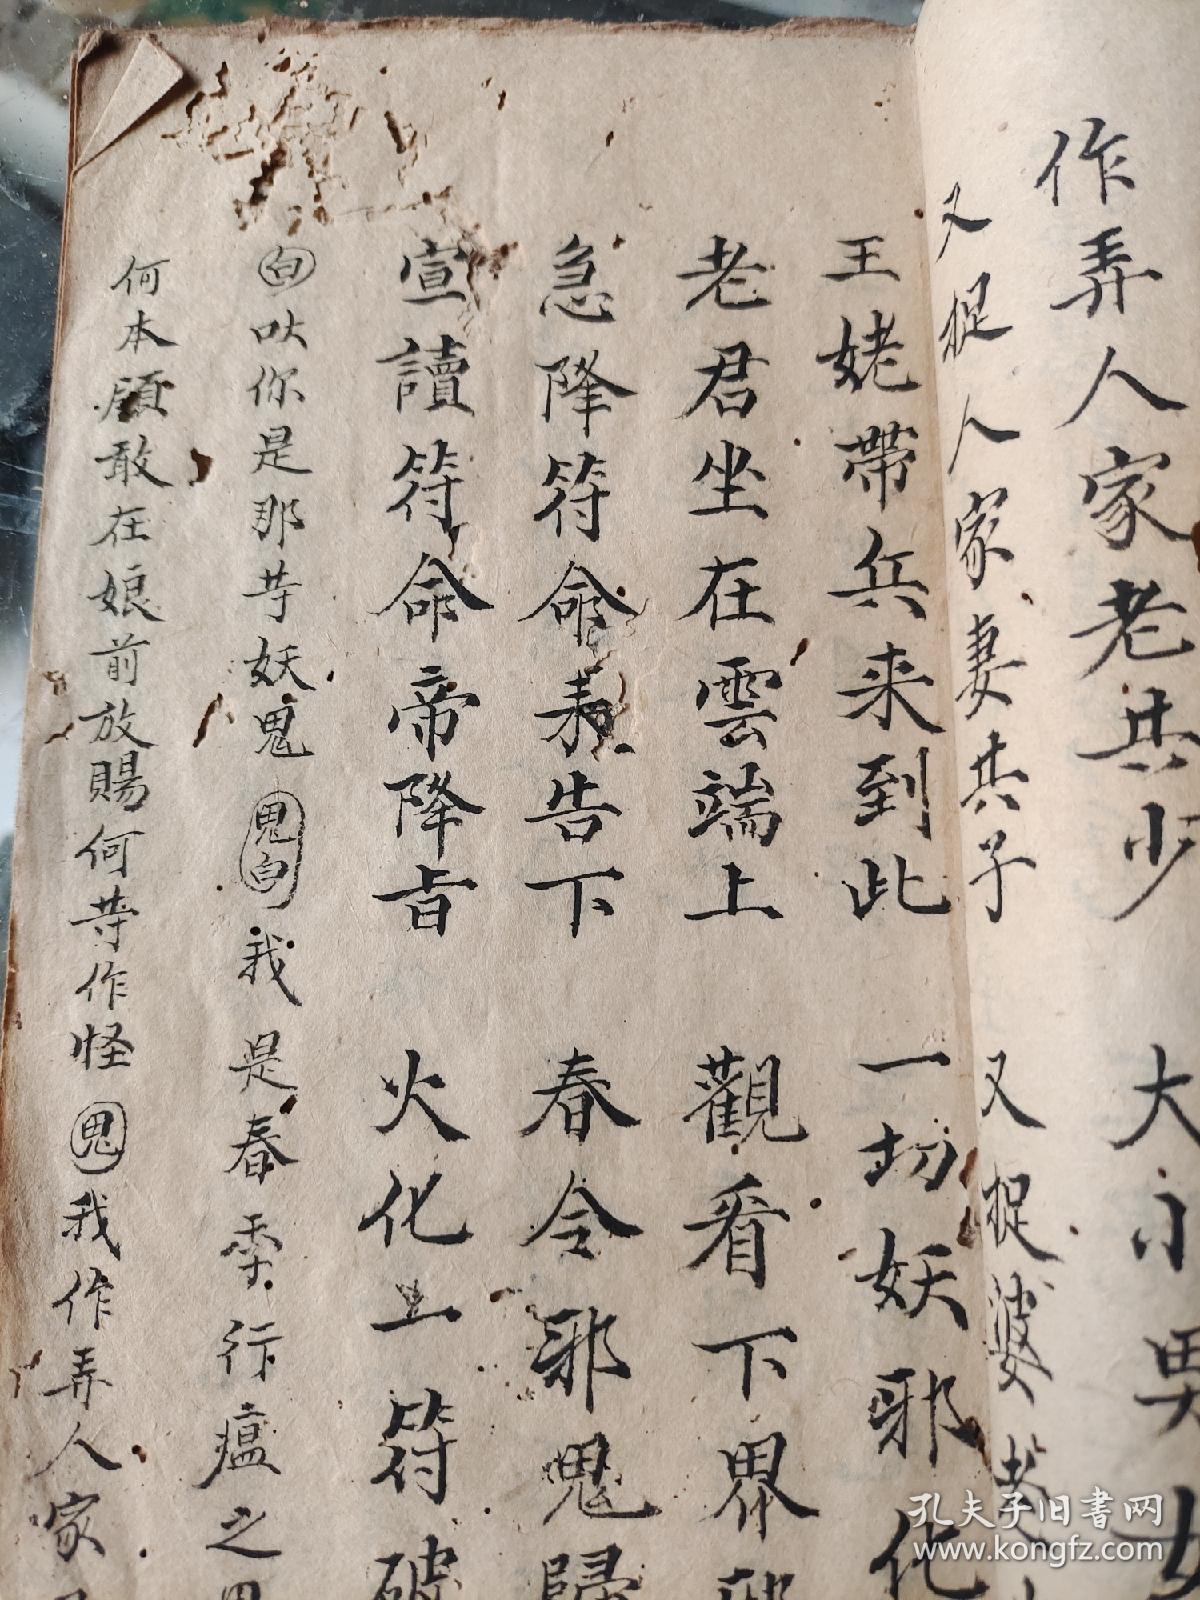 作弄人家老共少　大小男女
又捉人家妻共子　又捉婆老
王姥帶兵来到此　一切妖邪化
老君坐在雲端上　觀看下界邪
急降符命来告下　春令邪鬼歸
宣讀符命帝降旨　火化上符破
白吠你是那䒭妖鬼 鬼白 我是春季行瘟之鬼
何本顧敢在娘前放賜何䒭作怪 鬼 我作弄人家
孔夫子旧书网
www.kongfz.com